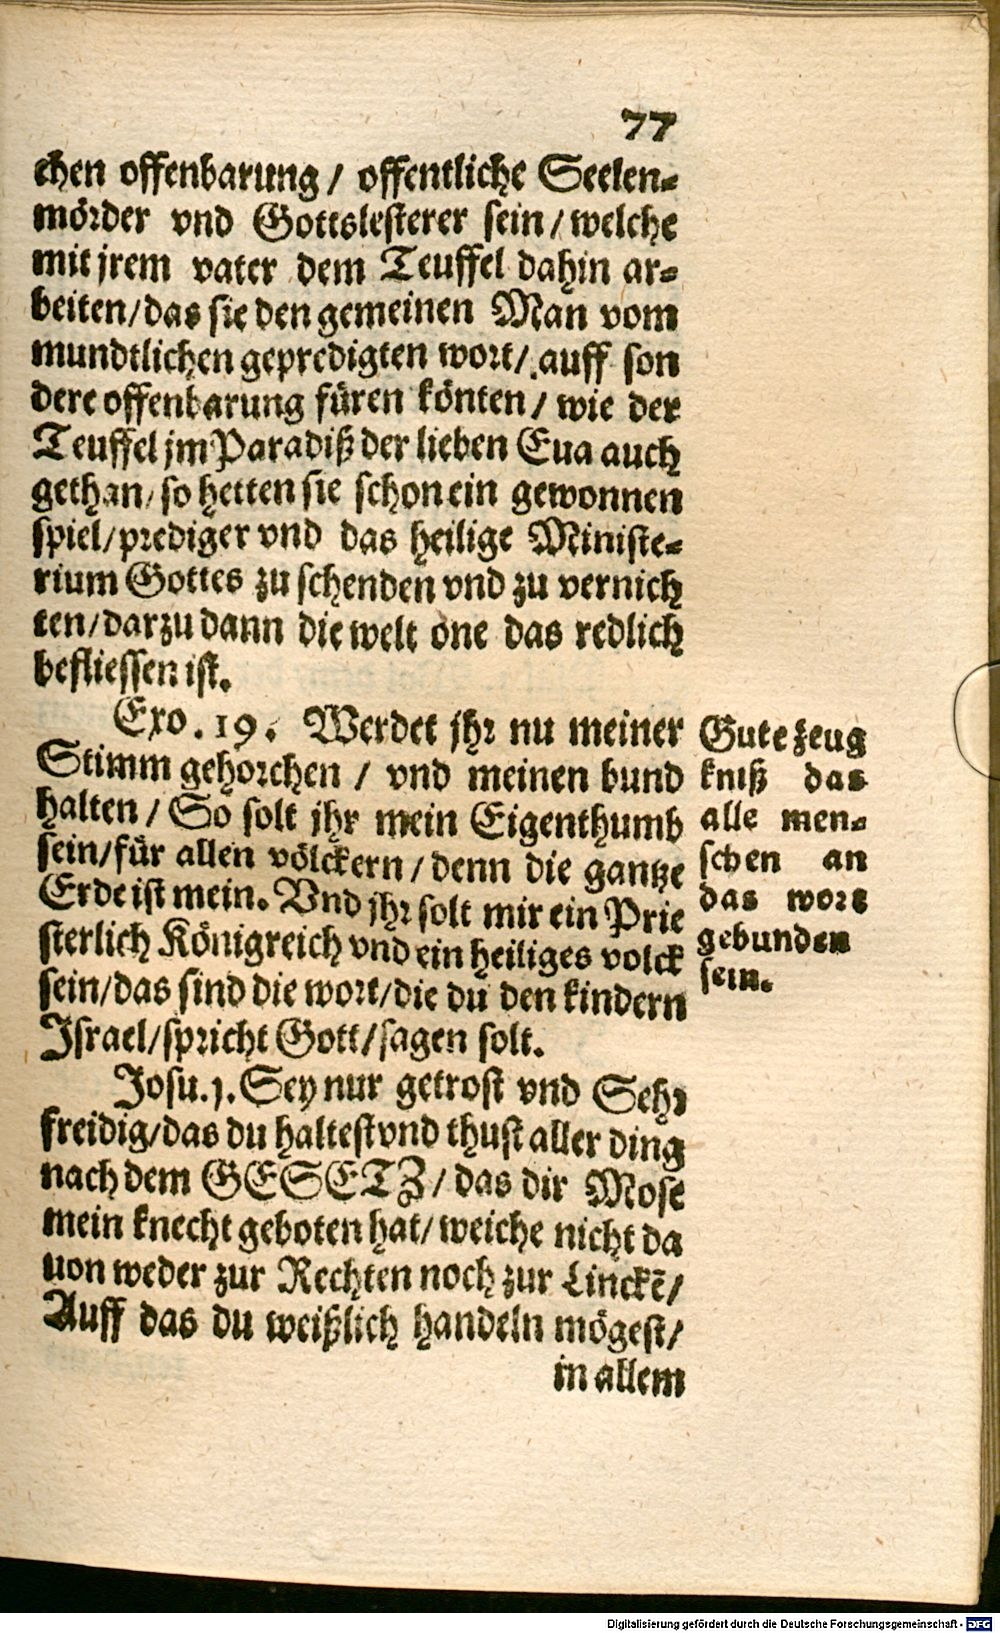 77
chen offenbarung / offentliche Seelen⸗
mörder vnd Gottslesterer sein / welche
mit jrem vater dem Teuffel dahin ar⸗
beiten / das sie den gemeinen Man vom
mundtlichen gepredigten wort / auff son
dere offenbarung füren könten / wie der
Teuffel jm Paradiß der lieben Eua auch
gethan / so hetten sie schon ein gewonnen
spiel / prediger vnd das heilige Ministe⸗
rium Gottes zu schenden vnd zu vernich
ten / darzu dann die welt one das redlich
befliessen ist.
Exo. 19. Werdet jhr nu meiner
Stimm gehorchen / vnd meinen bund
halten / So solt jhr mein Eigenthumb
sein / für allen völckern / denn die gantze
Erde ist mein. Vnd jhr solt mir ein Prie
sterlich Königreich vnd ein heiliges volck
sein / das sind die wort / die du den kindern
Israel / spricht Gott / sagen solt.
Gute zeug
kniß das
alle men⸗
schen an
das wort
gebunden
sein.
Josu. 1. Sey nur getrost vnd Sehr
freidig / das du haltest vnd thust aller ding
nach dem GESETZ / das dir Mose
mein knecht geboten hat / weiche nicht da
uon weder zur Rechten noch zur Linckẽ /
Auff das du weißlich handeln mögest /
in allem
Digitalisierung gefördert durch die Deutsche Forschungsgemeinschaft - DFG